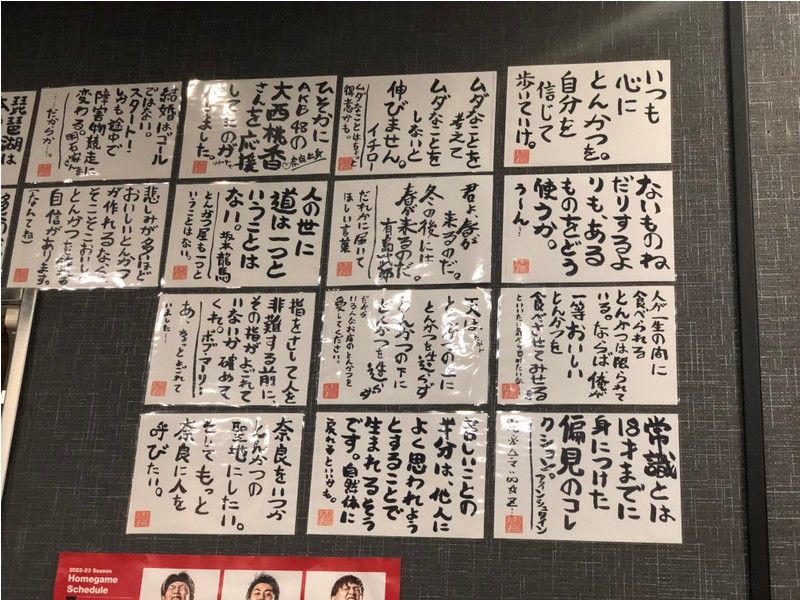 いつも
心に
とんかつを。
自分を
信じて
歩いていけ。
ムダなことを
考えて
ムダなことを
しないと
伸びません。
イチロー
ムダなことはちょっと
得意かも。
ひそかに
AKB48の
大西桃香
さんを応援
奈良出身
結婚は、ゴール
ではない。
スタート!
しかも途中で
障害物競走に
変わる。
…だからか…。
琵琶湖は
ないものね
だりするよ
りも、ある
ものをどう
使うか。
うーん…
君よ、春が
来るのだ。
冬の後には
春が来るのだ。
だれかに届いて
ほしい言葉
人の世に
道は一つと
いうことは
ない。
坂本龍馬
とんかつ屋も一つと
いうことはない。
悲しみが多いほど
おいしいとんかつ
が作れるなら
自信があります。
(なんてね)
人が一生の間に
食べられる
とんかつは限られて
いる。ならば俺が
一等おいしい
とんかつを
食べさせてみせる
天は
とんかつの上に
とんかつを造らず
とんかつの下に
とんかつを造らず
いろんなお店のとんかつを
愛してください。
指をさして人を
非難する前に、
その指がよごれて
いないか確めて
くれ。
ボブ・マーリー
あ、ちょっとよごれて
いました…
常識とは
18才までに
身につけた
偏見のコレ
クション。
アインシュタイン
苦しいことの
半分は、他人に
よく思われよう
とすることで
生まれるそう
です。自然体に
戻れるといいかも。
奈良をいつか
とんかつの
聖地にしたい。
そしてもっと
奈良に人を
呼びたい。
2022-23 Season
Homegame
Schedule